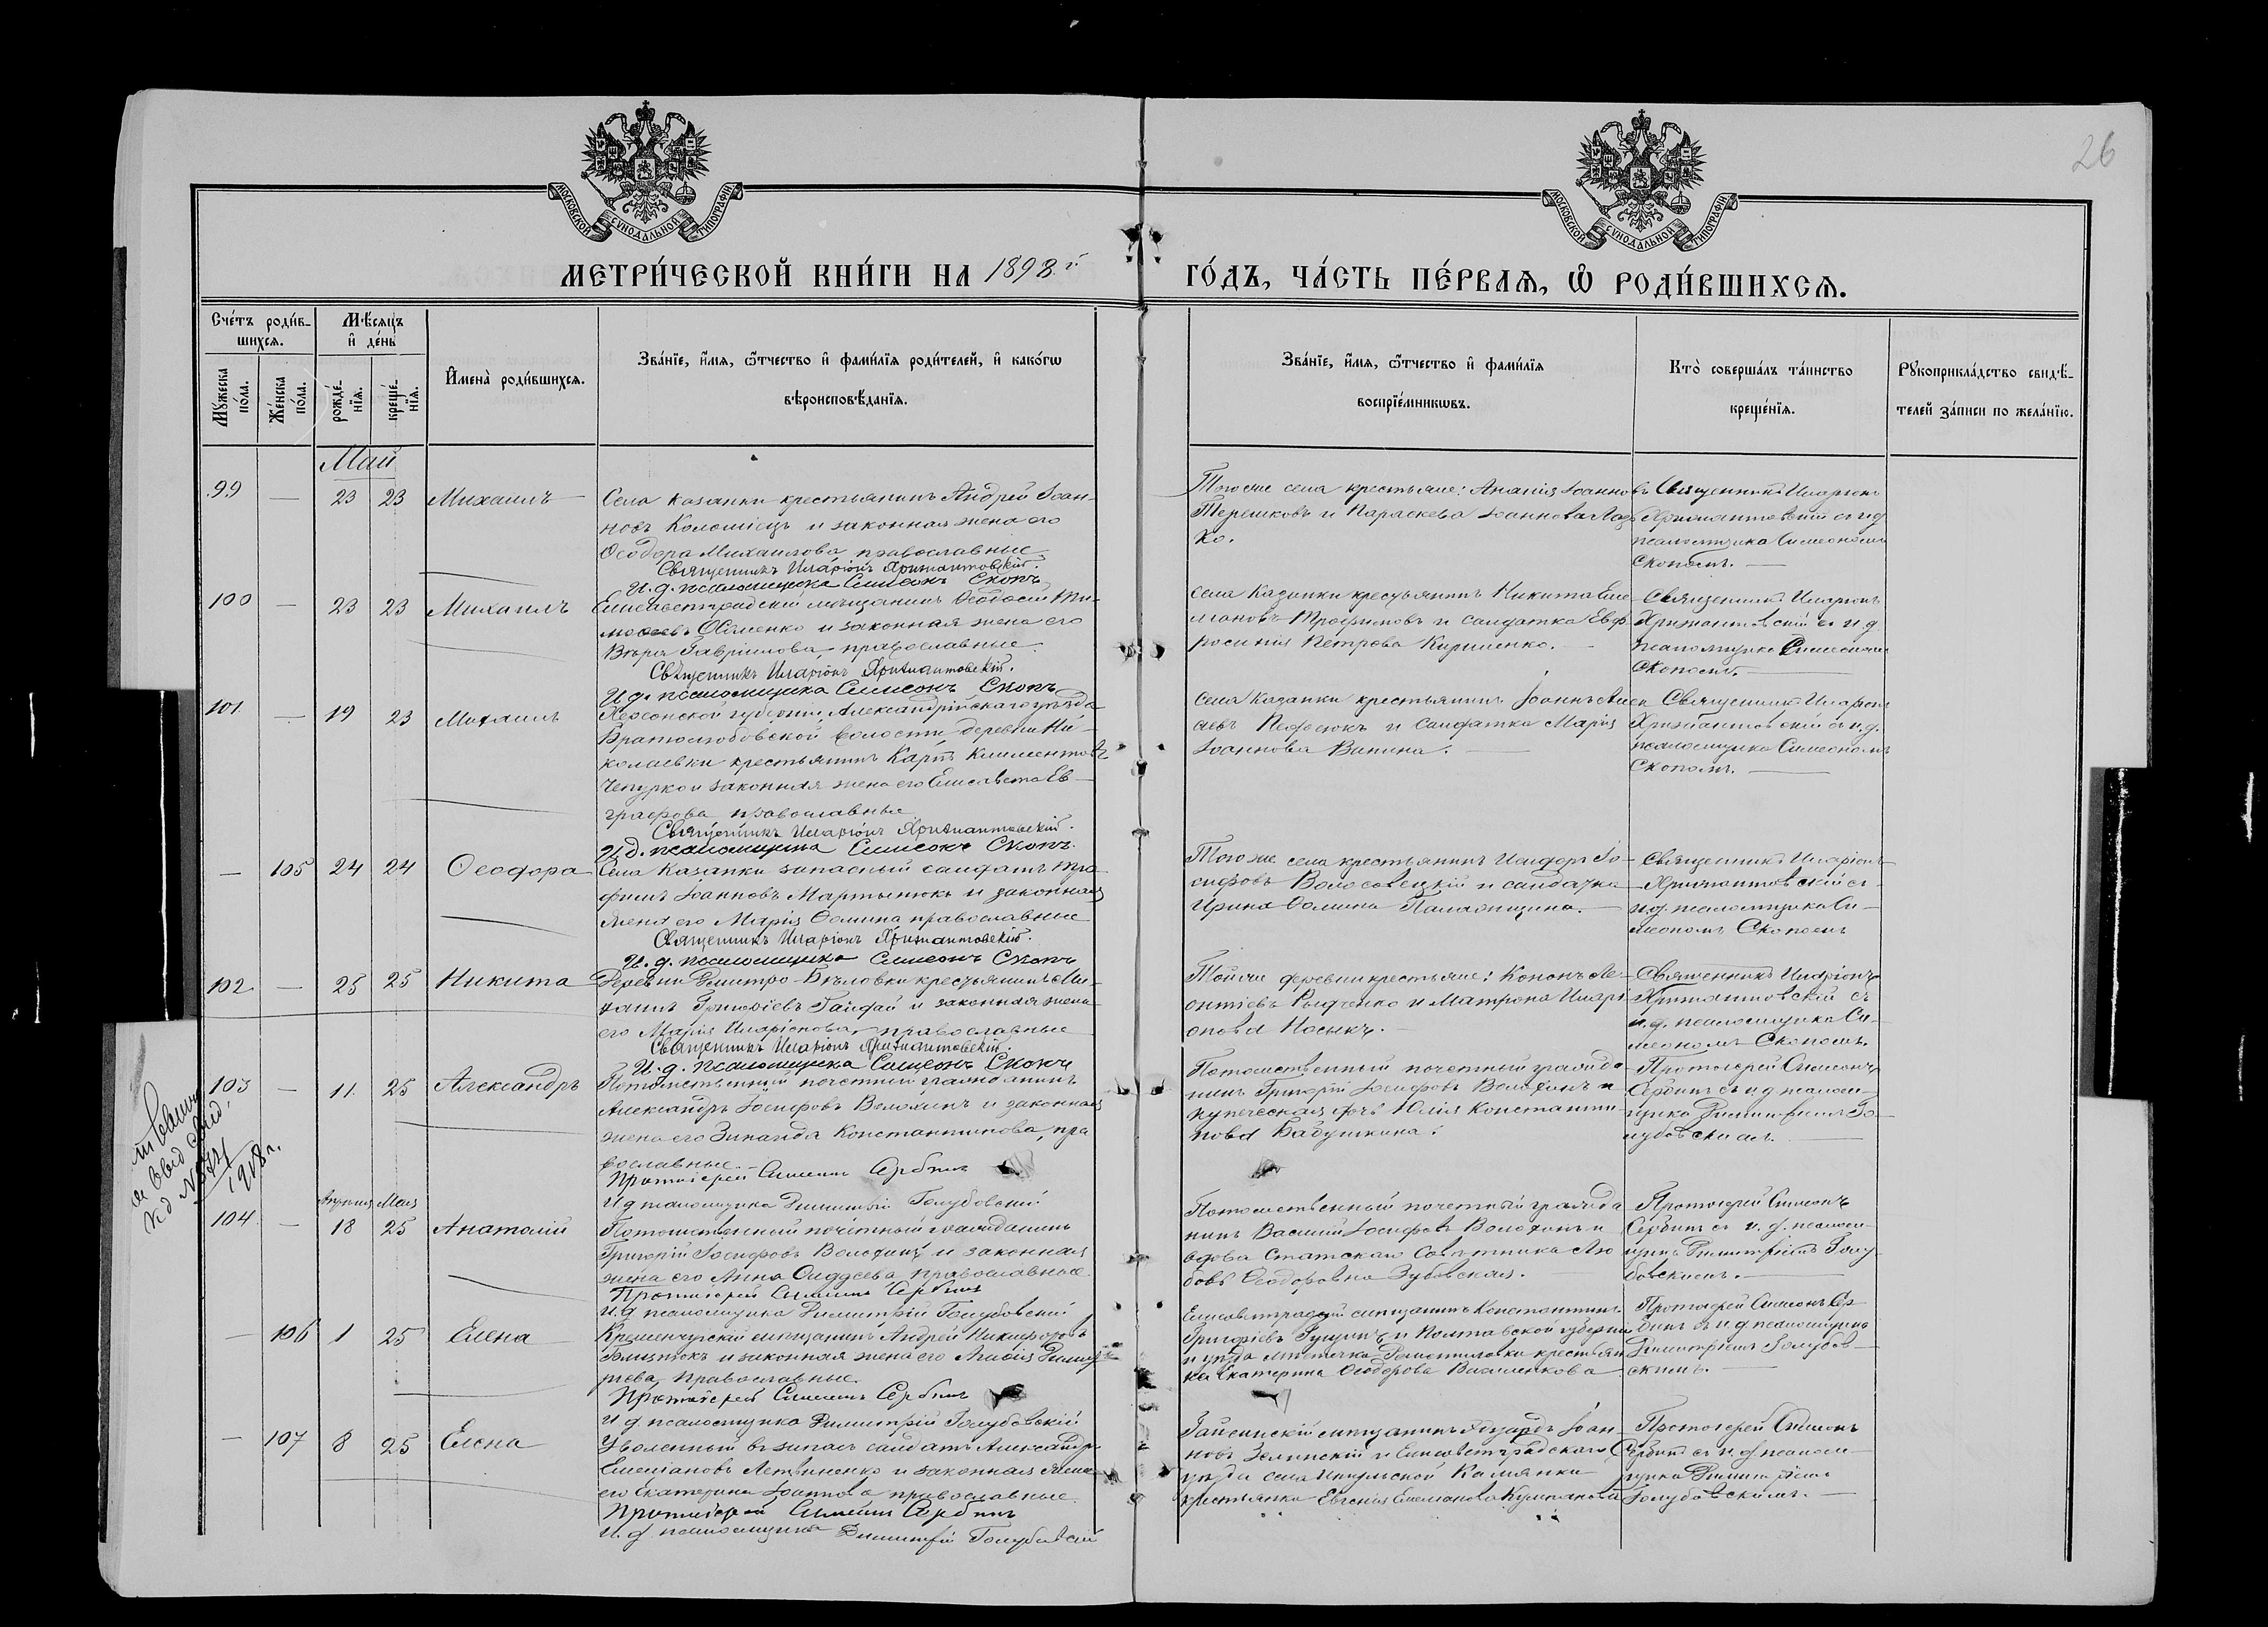 26
МОСКОВСКОЙ СѴНОДАЛЬНОЙ ТИПОГРАФІИ
МОСКОВСКОЙ СѴНОДАЛЬНОЙ ТИПОГРАФІИ
МЕТРИ́ЧЕСКОЙ КНИ́ГИ НА 1898 г.
ГО́ДЪ, ЧА́СТЬ ПЕ́РВАѦ, Ѡ РОДИ́ВШИХСѦ.
Сче́тъ роди́в-
шихсѧ.
Мꙋжеска
по́ла.
Же́нска
по́ла.
Мѣ́сѧцъ
и҆ де́нь
рожде́-
нїѧ.
креще́-
нїѧ.
И҆мена̀ роди́вшихсѧ.
Зва́нїе, и҆́мѧ, ѻ҆́тчество и҆ фами́лїѧ роди́телей, и҆ како́гѡ
вѣроисповѣ́данїѧ.
Зва́нїе, и҆́мѧ, ѻ҆́тчество и҆ фами́лїѧ
воспрїе́мникѡвъ.
Кто̀ соверша́лъ та́инство
креще́нїѧ.
Рꙋкоприкла́дство свидѣ́-
телей за́писи по жела́нїю.
Май
99 — 23 23 Михаилъ
Села Казанки крестьянинъ Андрей Іоан-
новъ Коломіецъ и законная жена его
Ѳеодора Михаилова православные
Священникъ Иларіонъ Хрисантовскій.
И. д. псаломщика Симеонъ Скопъ
Того же села крестьяне: Ананія Іоанновъ
Терешковъ и Параскева Іоаннова
ко.
Священникъ Иларіонъ
Хрисантовскій съ и.д.
псаломщика Симеономъ
Скопомъ.
100 — 23 23 Михаилъ
Елисаветградскій мѣщанинъ Ѳеодосій Ти-
моѳеевъ и законная жена его
Вѣра Гавріилова, православные.
Священникъ Иларіонъ Хрисантовскій.
И. д. псаломщика Симеонъ Скопъ
Села Казанки крестьянинъ Никита Еме-
ліановъ Трофимовъ и солдатка Евф-
росинія Петрова Кириленко.
Священникъ Иларіонъ
Хрисантовскій съ и.д.
псаломщика Симеономъ
Скопомъ.
101 — 19 23 Михаилъ
Херсонской губерніи, Александрійскаго уѣзда
Братолюбовской волости деревни Ни-
колаевки крестьянинъ Карпъ Климентовъ
Чепурко и законная жена его Елисавета Ев-
графова, православные
Священникъ Иларіонъ Хрисантовскій.
И. д. псаломщика Симеонъ Скопъ
Села Казанки крестьянинъ Іоаннъ
и солдатка Марія
Іоаннова Ванина.
Священникъ Иларіонъ
Хрисантовскій съ и.д.
псаломщика Симеономъ
Скопомъ.
— 105 24 24 Ѳеодора
Села Казанки запасный солдатъ Тро-
фимъ Іоанновъ Мартынюкъ и законная
жена его Марія Ѳомина православные
Священникъ Иларіонъ Хрисантовскій.
И. д. псаломщика Симеонъ Скопъ
Того же села крестьянинъ Исидоръ Іо-
сифовъ Волосовецкій и солдатка
Ирина Ѳомина
Священникъ Иларіонъ
Хрисантовскій съ
и.д. псаломщика Си-
меономъ Скопомъ
102 — 25 25 Никита
Деревни Димитро-Бѣловки крестьянинъ Ми-
хаилъ Григоріевъ Гайдай и законная жена
его Марія Иларіонова, православные
Священникъ Иларіонъ Хрисантовскій.
И. д. псаломщика Симеонъ Скопъ
Той же деревни крестьяне: Кононъ Ле-
онтіевъ и Матрона Илари-
онова Носикъ.
Священникъ Иларіонъ
Хрисантовскій съ
и.д. псаломщика Си-
меономъ Скопомъ.
103 — 11 25 Александръ
Потомственный почетный гражданинъ
Александръ Іосифовъ Волохинъ и законная
жена его Зинаида Константинова, пра
вославные.
Протоіерей Симеонъ Сербинъ
И. д. псаломщика Димитрій Голубовскій
Потомственный почетный гражда-
нинъ Григорій Іосифовъ Волохинъ и
купеческая дочь Юлія Константи-
нова Бабушкина.
Протоіерей Симеонъ
Сербинъ съ и.д. псалом-
щика Димитріемъ Го-
лубовскимъ.
1918 г.
Апрѣля Мая
104 — 18 25 Анатолій
Потомственный почетный гражданинъ
Григорій Іосифовъ Волохинъ и законная
жена его Анна Ѳаддеева, православные.
Протоіерей Симеонъ Сербинъ
И. д. псаломщика Димитрій Голубовскій
Потомственный почетный гражда
нинъ Василій Іосифовъ Волохинъ и
вдова Статскаго Совѣтника Лю
бовь Ѳеодоровна Зубовская.
Протоіерей Симеонъ
Сербинъ съ и. д. псалом-
щика Димитріемъ Голу-
бовскимъ.
— 106 1 25 Елена
Кременчугскій мѣщанинъ Андрей Никифоровъ
и законная жена его
православные.
Протоіерей Симеонъ Сербинъ
И. д. псаломщика Димитрій Голубовскій
Елисаветградскій мѣщанинъ Константинъ
Григоріевъ и Полтавской губерніи
и уѣзда мѣстечка крестьян
ка Екатерина Ѳеодорова Василенкова
Протоіерей Симеонъ Сер-
бинъ съ и.д. псаломщика
Димитріемъ Голубов-
скимъ.
— 107 8 25 Елена
Уволенный въ запасъ солдатъ Александръ
Емеліановъ Летвиненко и законная жена
его Екатерина Іоаннова православные.
Протоіерей Симеонъ Сербинъ
И. д. псаломщика Димитрій Голубовскій
Гайсинскій мѣщанинъ Эдуардъ Іоан-
новъ Зелинскій и Елисаветградскаго
уѣзда села Ингульской Каменки
крестьянка Евгенія Емеліанова
Протоіерей Симеонъ
Сербинъ съ и. д. псалом-
щика Димитріемъ
Голубовскимъ.